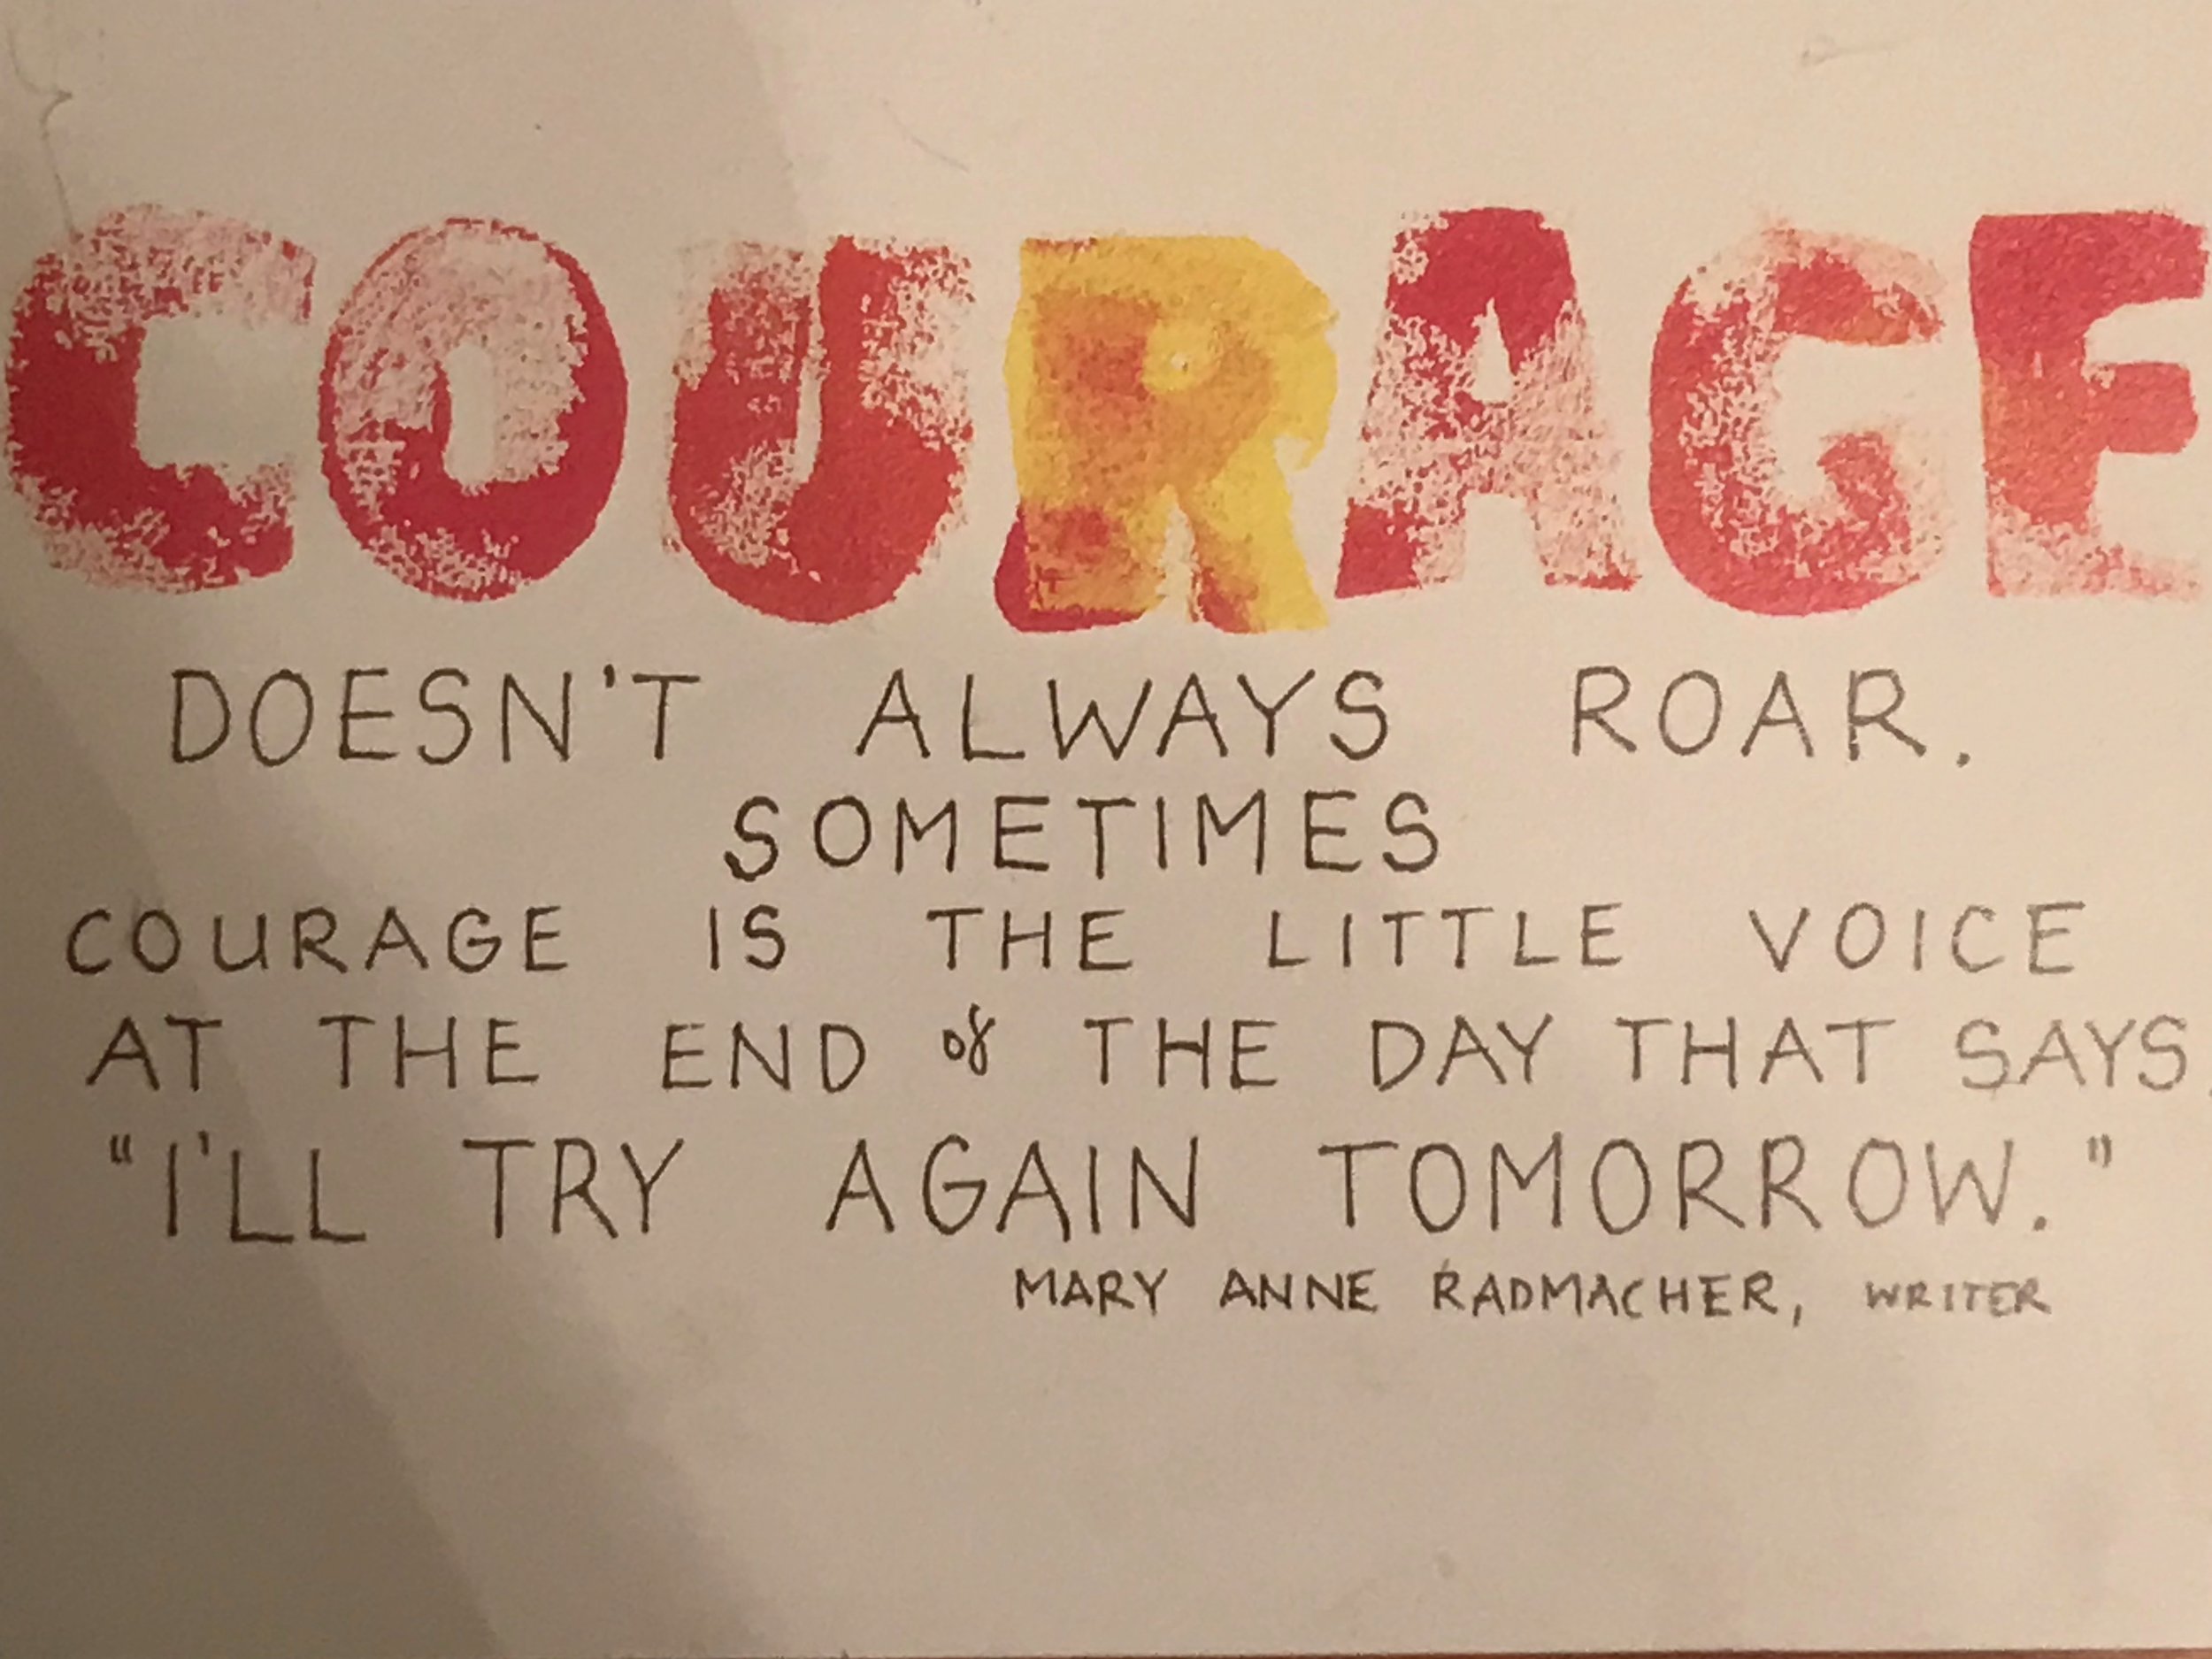 COURAGE
DOESN'T ALWAYS ROAR.
SOMETIMES
COURAGE IS THE LITTLE VOICE
AT THE END of THE DAY THAT SAYS
"I'LL TRY AGAIN TOMORROW."
MARY ANNE RADMACHER, WRITER